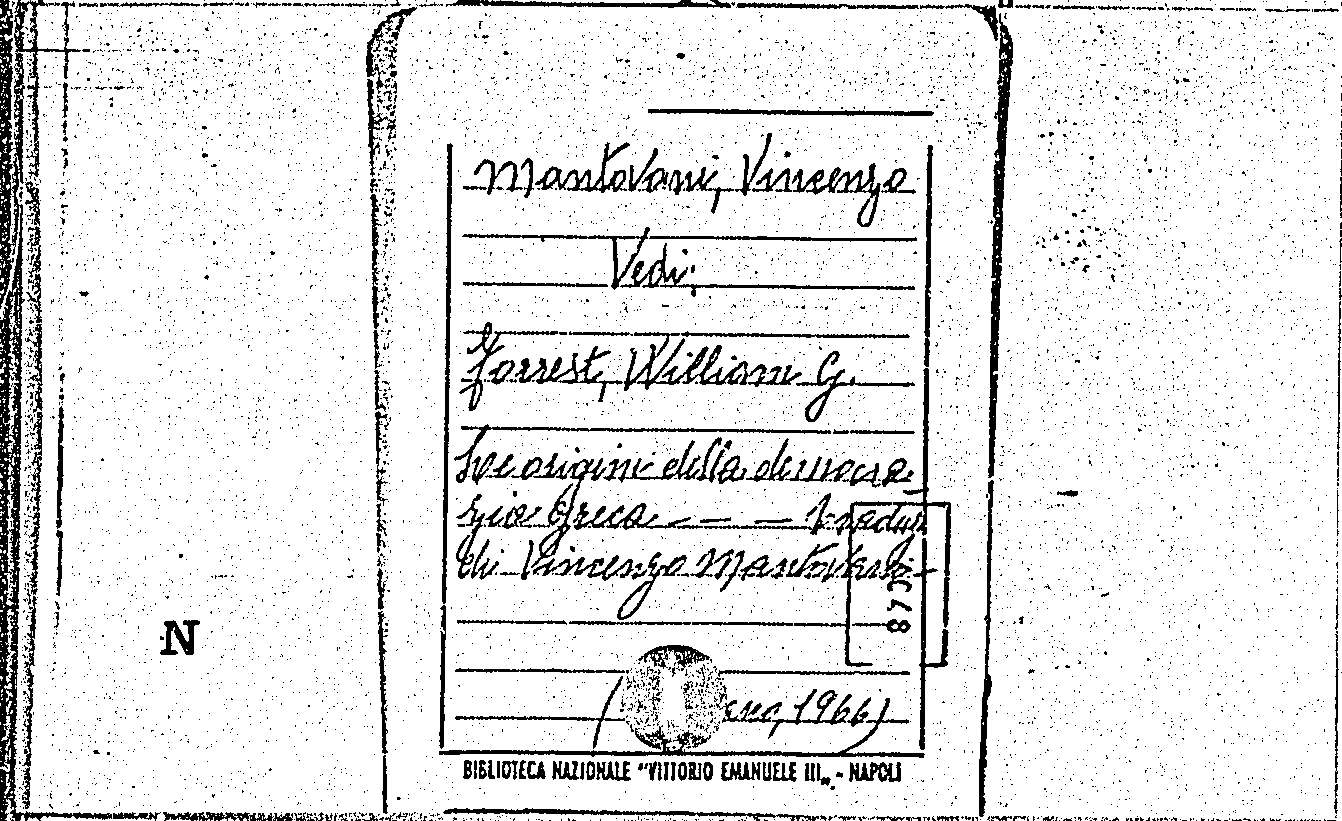 Mantovani, Vincenzo
Vedi:
Forrest, William G.
Le origini della democra
zia Greca — — — Traduz
di Vincenzo Mantovani
N
1966)
BIBLIOTECA NAZIONALE "VITTORIO EMANUELE III„ - NAPOLI